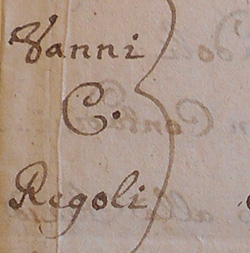 Vanni
C.
Regoli